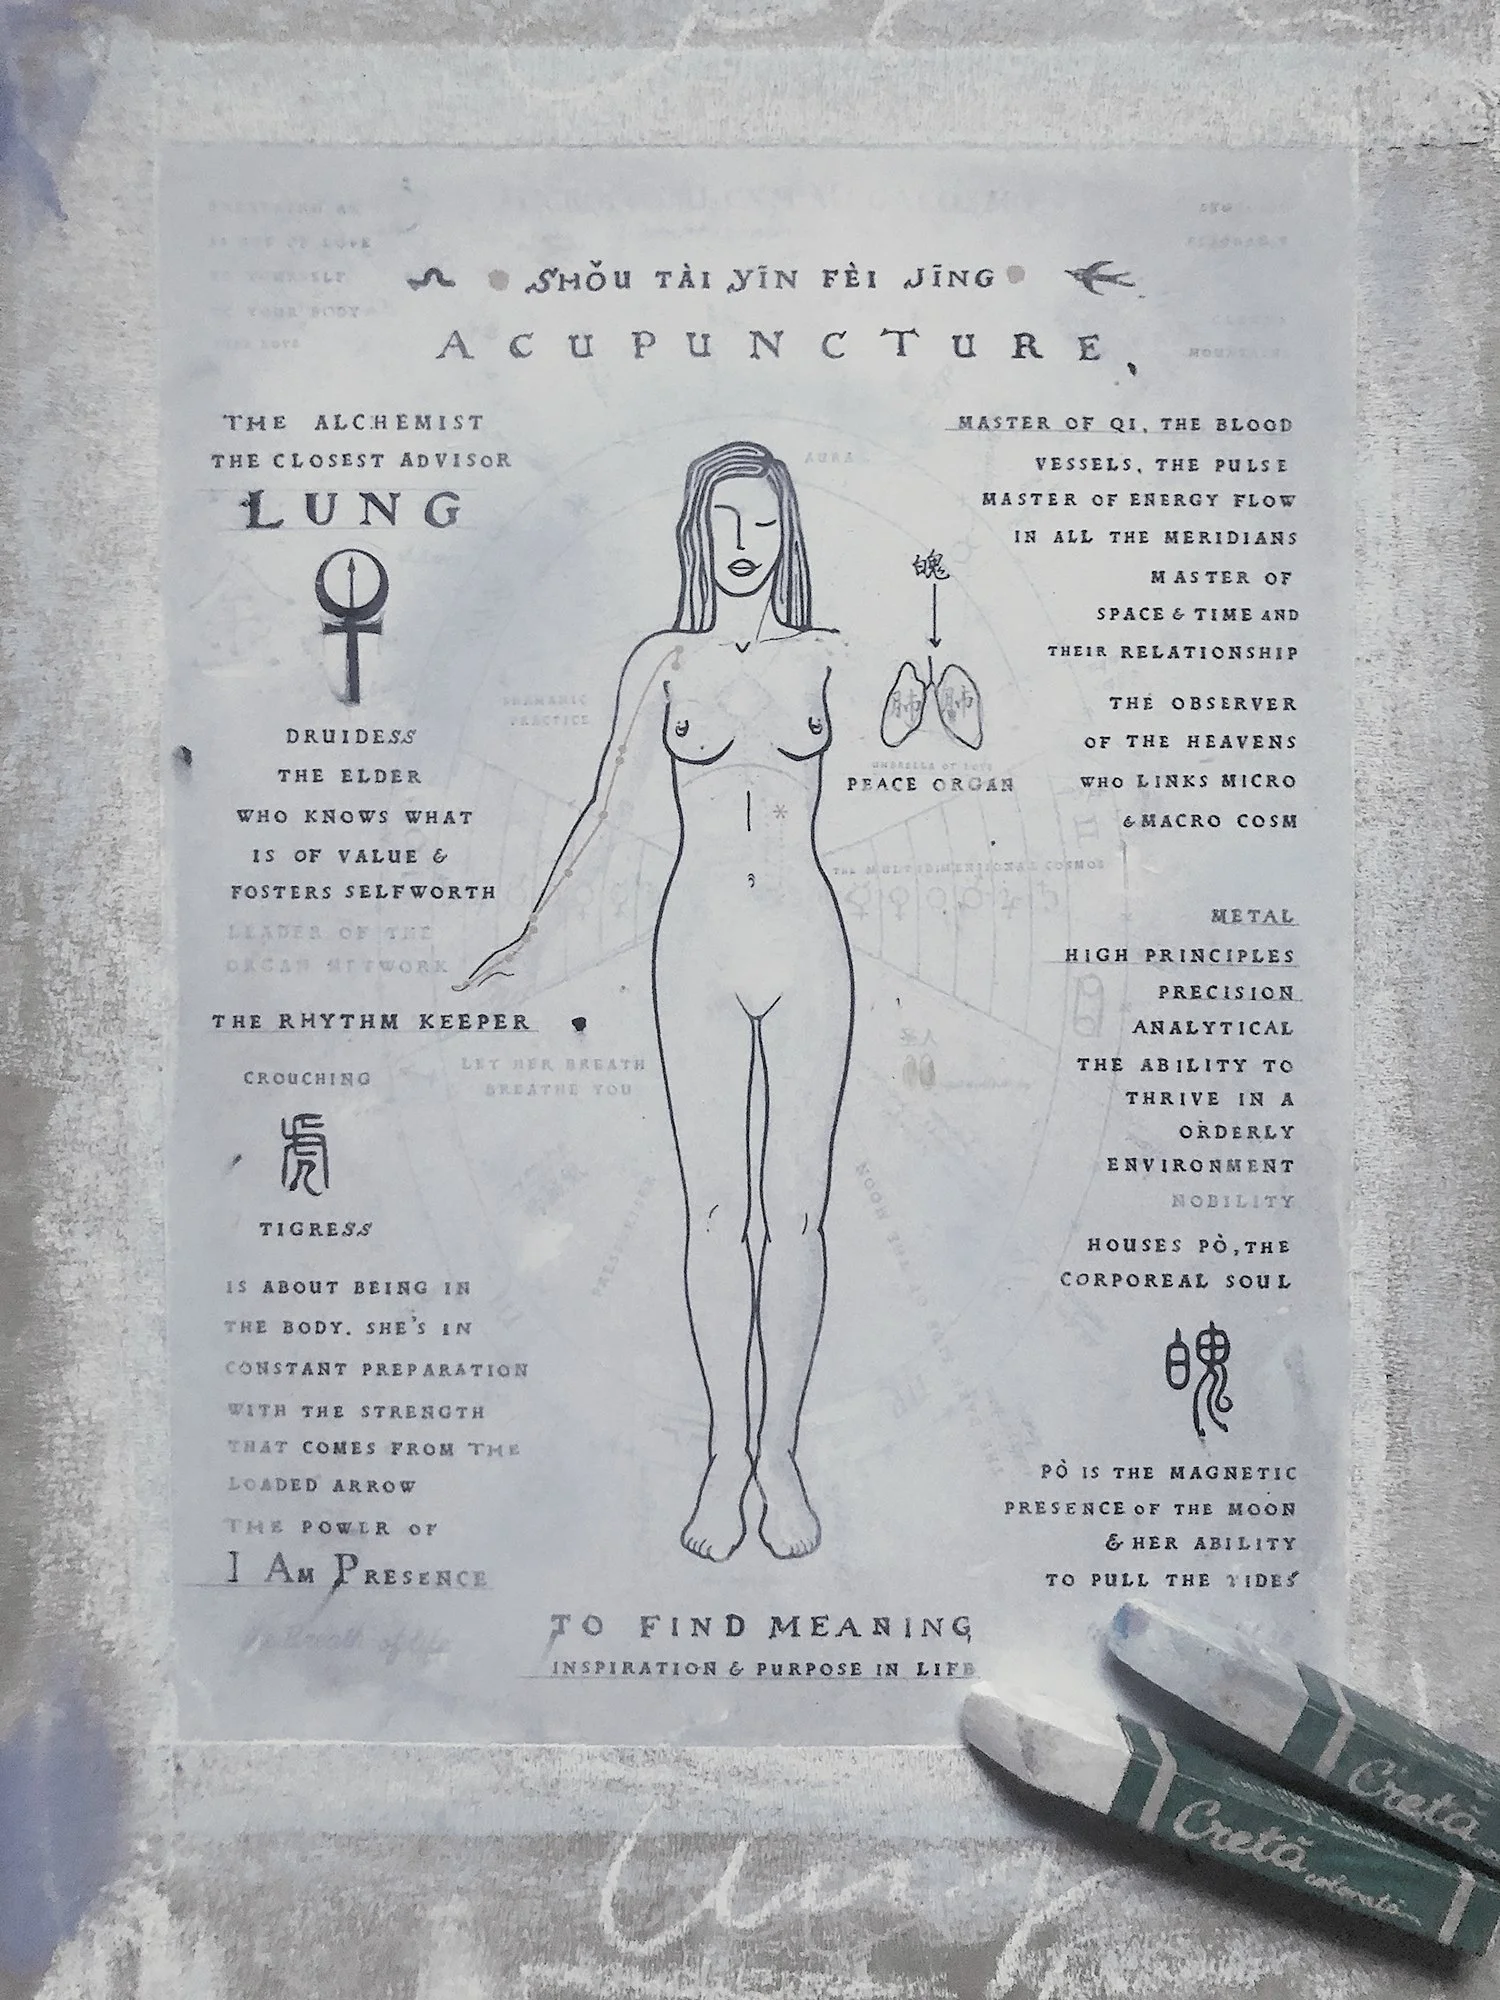 SHǑU TÀI YĪN FÈI JĪNG
ACUPUNCTURE
THE ALCHEMIST
THE CLOSEST ADVISOR
LUNG
DRUIDESS
THE ELDER
WHO KNOWS WHAT
IS OF VALUE &
FOSTERS SELFWORTH
LEADER OF THE
ORGAN NETWORK
THE RHYTHM KEEPER
CROUCHING
虎
TIGRESS
IS ABOUT BEING IN
THE BODY. SHE'S IN
CONSTANT PREPARATION
WITH THE STRENGTH
THAT COMES FROM THE
LOADED ARROW
THE POWER OF
I AM PRESENCE
Breath of life
AURA
SHAMANIC
PRACTICE
LET HER BREATH
BREATHE YOU
魄
肺 肺
UMBRELLA OF LOVE
PEACE ORGAN
THE MULTIDIMENSIONAL COSMOS
MASTER OF QI, THE BLOOD
VESSELS, THE PULSE
MASTER OF ENERGY FLOW
IN ALL THE MERIDIANS
MASTER OF
SPACE & TIME AND
THEIR RELATIONSHIP
THE OBSERVER
OF THE HEAVENS
WHO LINKS MICRO
& MACRO COSM
METAL
HIGH PRINCIPLES
PRECISION
ANALYTICAL
THE ABILITY TO
THRIVE IN A
ORDERLY
ENVIRONMENT
NOBILITY
HOUSES PÒ, THE
CORPOREAL SOUL
魄
PÒ IS THE MAGNETIC
PRESENCE OF THE MOON
& HER ABILITY
TO PULL THE TIDES
TO FIND MEANING
INSPIRATION & PURPOSE IN LIFE
Cretă
Cretă
colorată